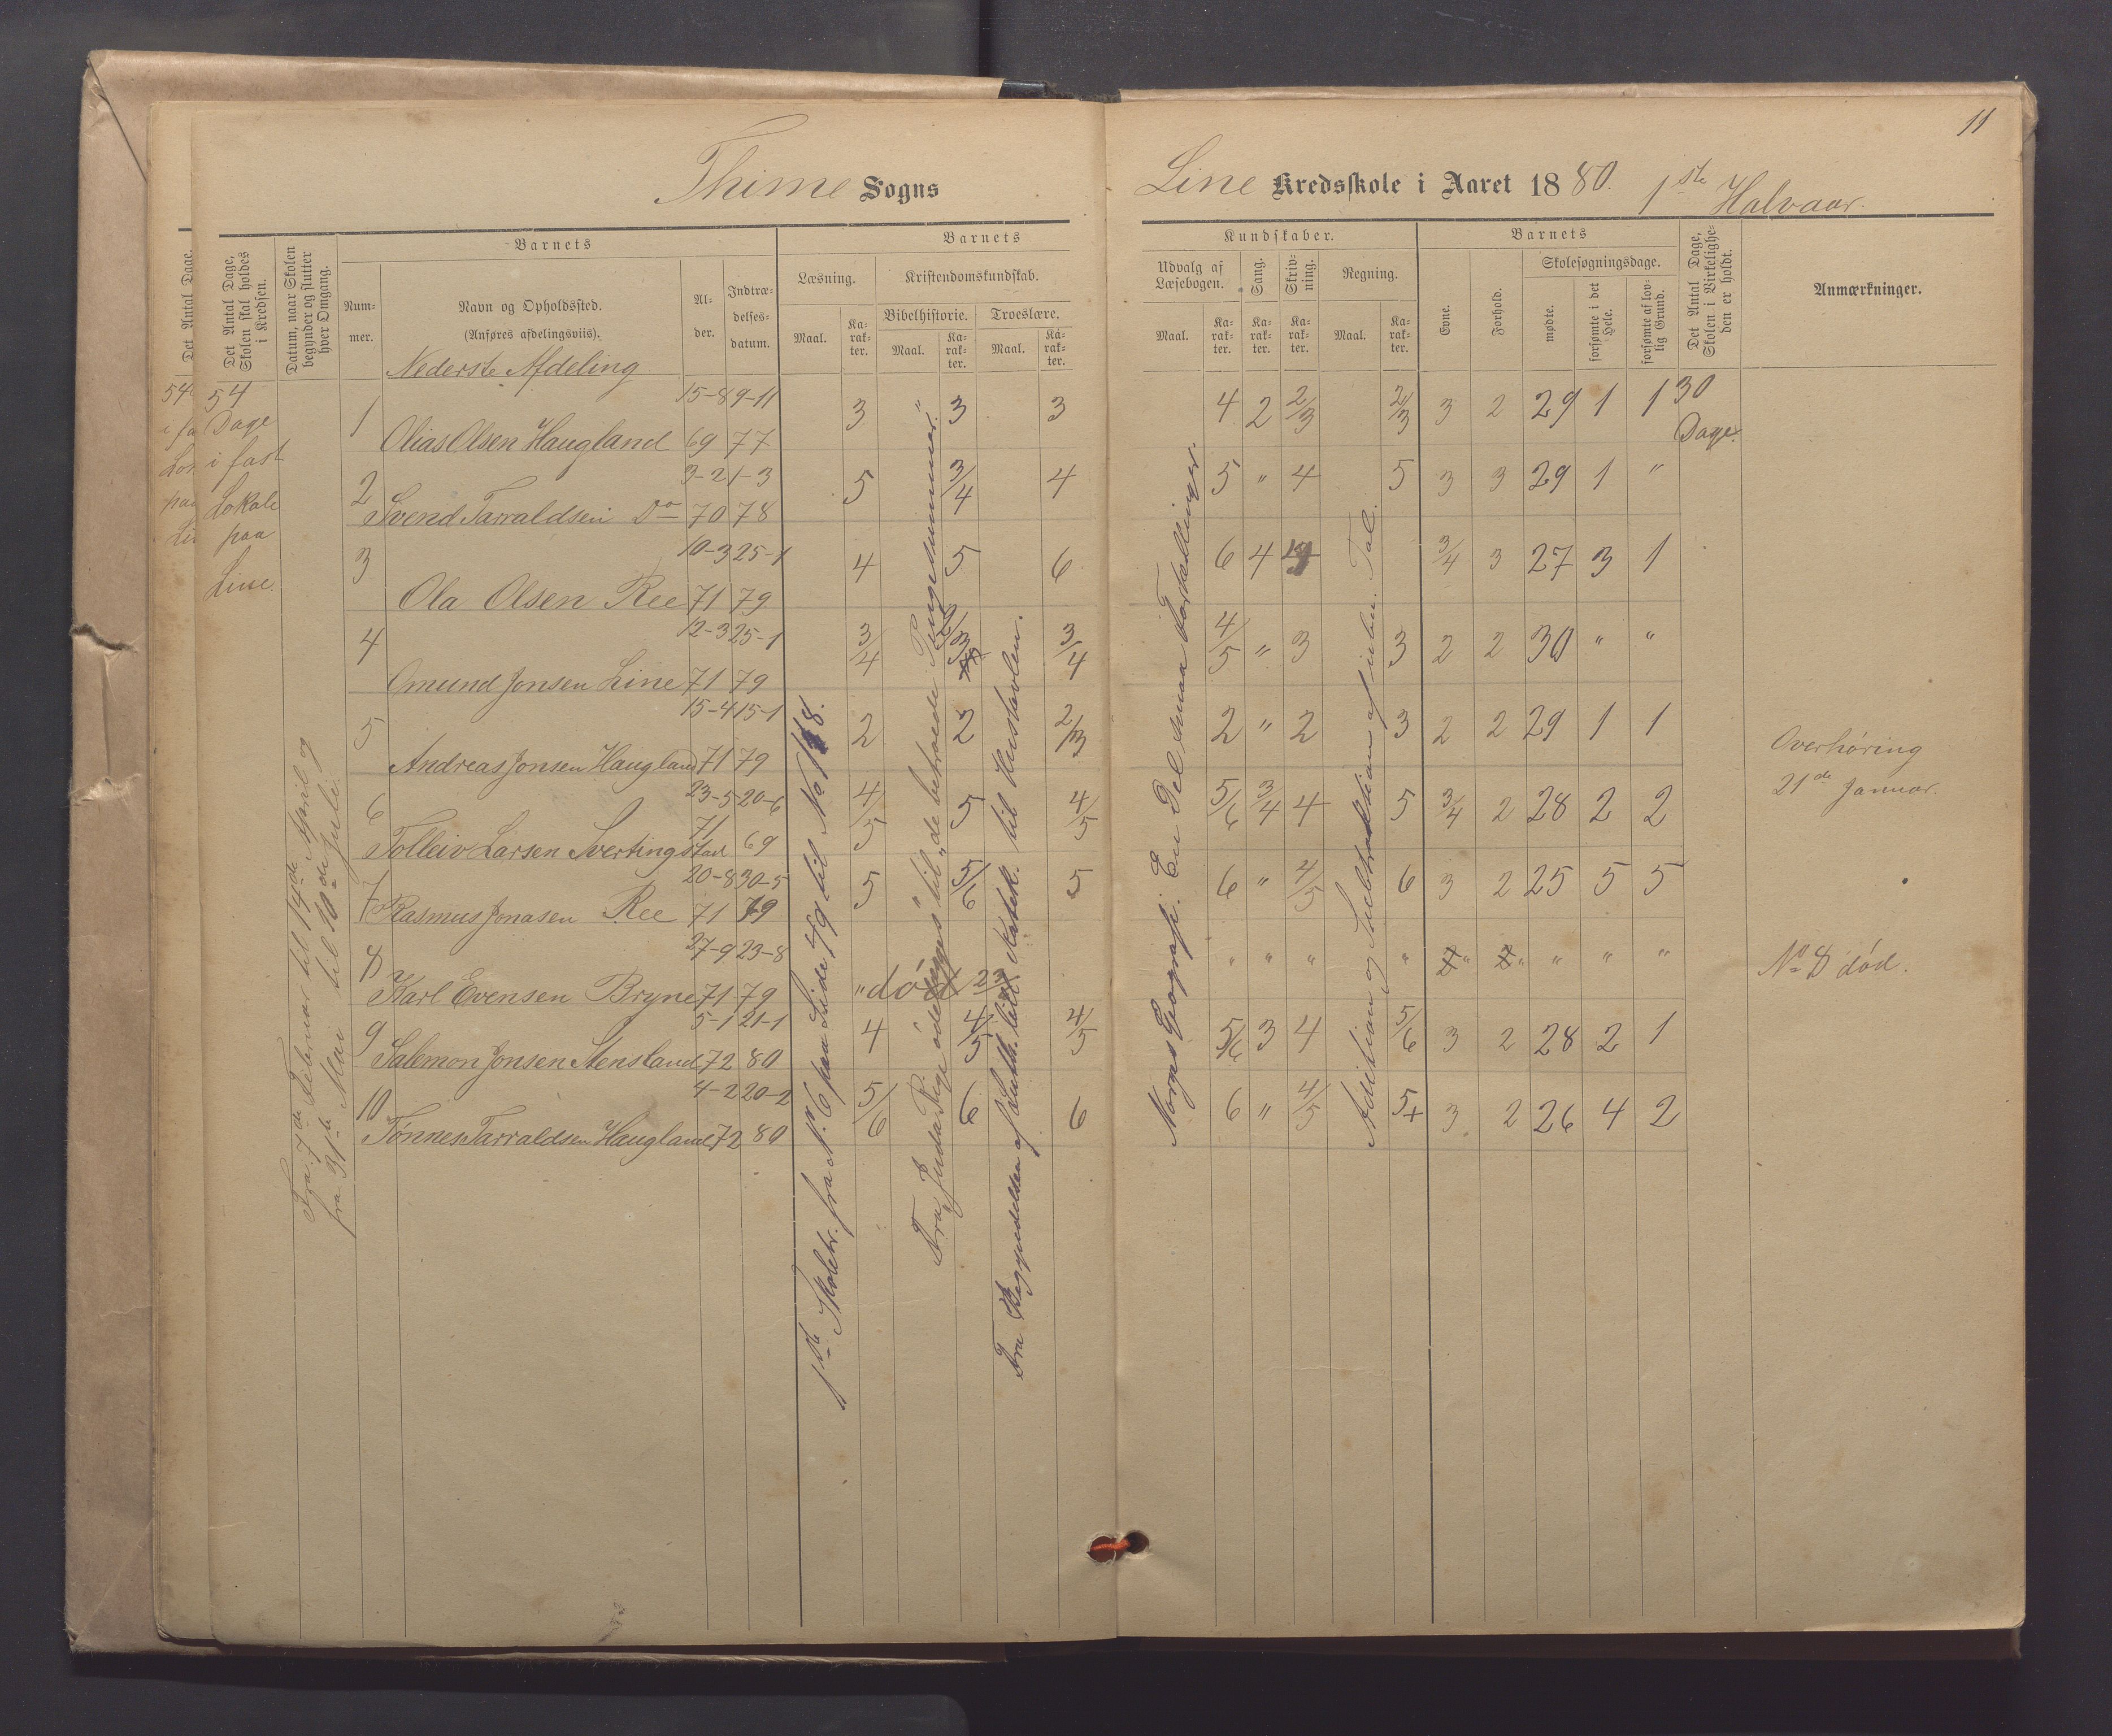 11
Thime Sogns
Line Kredsskole i Aaret 1880. 1ste Halvaar.
Det Antal Dage.
Det Antal Dage, Skolen skal holdes i Kredsen.
Datum, naar Skolen begynder og slutter hver Omgang.
Barnets
Num-mer.
Navn og Opholdssted.
(Anføres afdelingsviis).
Al-der.
Indtræ-delses-datum.
Barnets
Læsning.
Kristendomskundskab.
Bibelhistorie.
Troeslære.
Maal.
Ka-rak-ter.
Maal.
Ka-rak-ter.
Maal.
Ka-rak-ter.
Kundskaber.
Udvalg af Læsebogen.
Sang.
Skriv-ning.
Regning.
Maal.
Ka-rak-ter.
Ka-rak-ter.
Ka-rak-ter.
Maal.
Ka-rak-ter.
Barnets
Evne.
Forhold.
Skolesøgningsdage.
mødte.
forsømte i det Hele.
forsømte af lov-lig Grund.
Det Antal Dage, Skolen i Virkelighe-den er holdt.
Anmærkninger.
Nederste Afdeling
54
Dage
i fast
Lokale
paa
Line.
Fra 7de Februar til 14de April og
fra 31te Mai til 10de Juli
1 Olias Olsen Haugland 15-8 69 9-11 77 3 3 3 4 2 2/3 2/3 3 2 29 1 1 30 Dage.
2 Svend Tarraldsen Do 3-2 70 1-3 78 5 3/4 4 5 " 4 5 3 3 29 1 "
3 Ola Olsen Ree 10-3 71 25-1 79 4 5 6 6 4 3/4 3 27 3 1
4 Omund Jonsen Line 12-3 71 25-1 79 3/4 2/3 3/4 4/5 " 3 3 2 2 30 " "
5 Andreas Jonsen Haugland 15-4 71 15-1 79 2 2 2/3 2 " 2 3 2 2 29 1 1
6 Tolleiv Larsen Svertingstad 23-5 71 20-6 69 4/5 5 4/5 5/6 3/4 4 5 3/4 2 28 2 2
7 Rasmus Jonasen Ree 20-8 71 30-5 79 5 5/6 5 6 " 4/5 6 3 2 25 5 5
8 Karl Evensen Bryne 27-9 71 23-8 79 " død " " " " " " " " "
9 Salemon Jonsen Stensland 5-1 72 21-1 80 4 4/5 4/5 5/6 3 4 5/6 3 2 28 2 1
10 Tønnes Tarraldsen Haugland 4-2 72 20-2 80 5/6 6 6 6 " 4/5 5+ 3 2 26 4 2
1ste Skoletr. fra Nr. 6 paa Side 49 til No 118.
Fra "Juda Rige ødelægges" til "de betroede Penge summer."
Fra Begyndelsen af Luth. lille Katek. til Hustavlen.
Norges Geografi. En Del smaa Fortællinger.
Addition og Subtraktion af ubn. Tal.
Overhøring
21de Januar.
No 8 død.